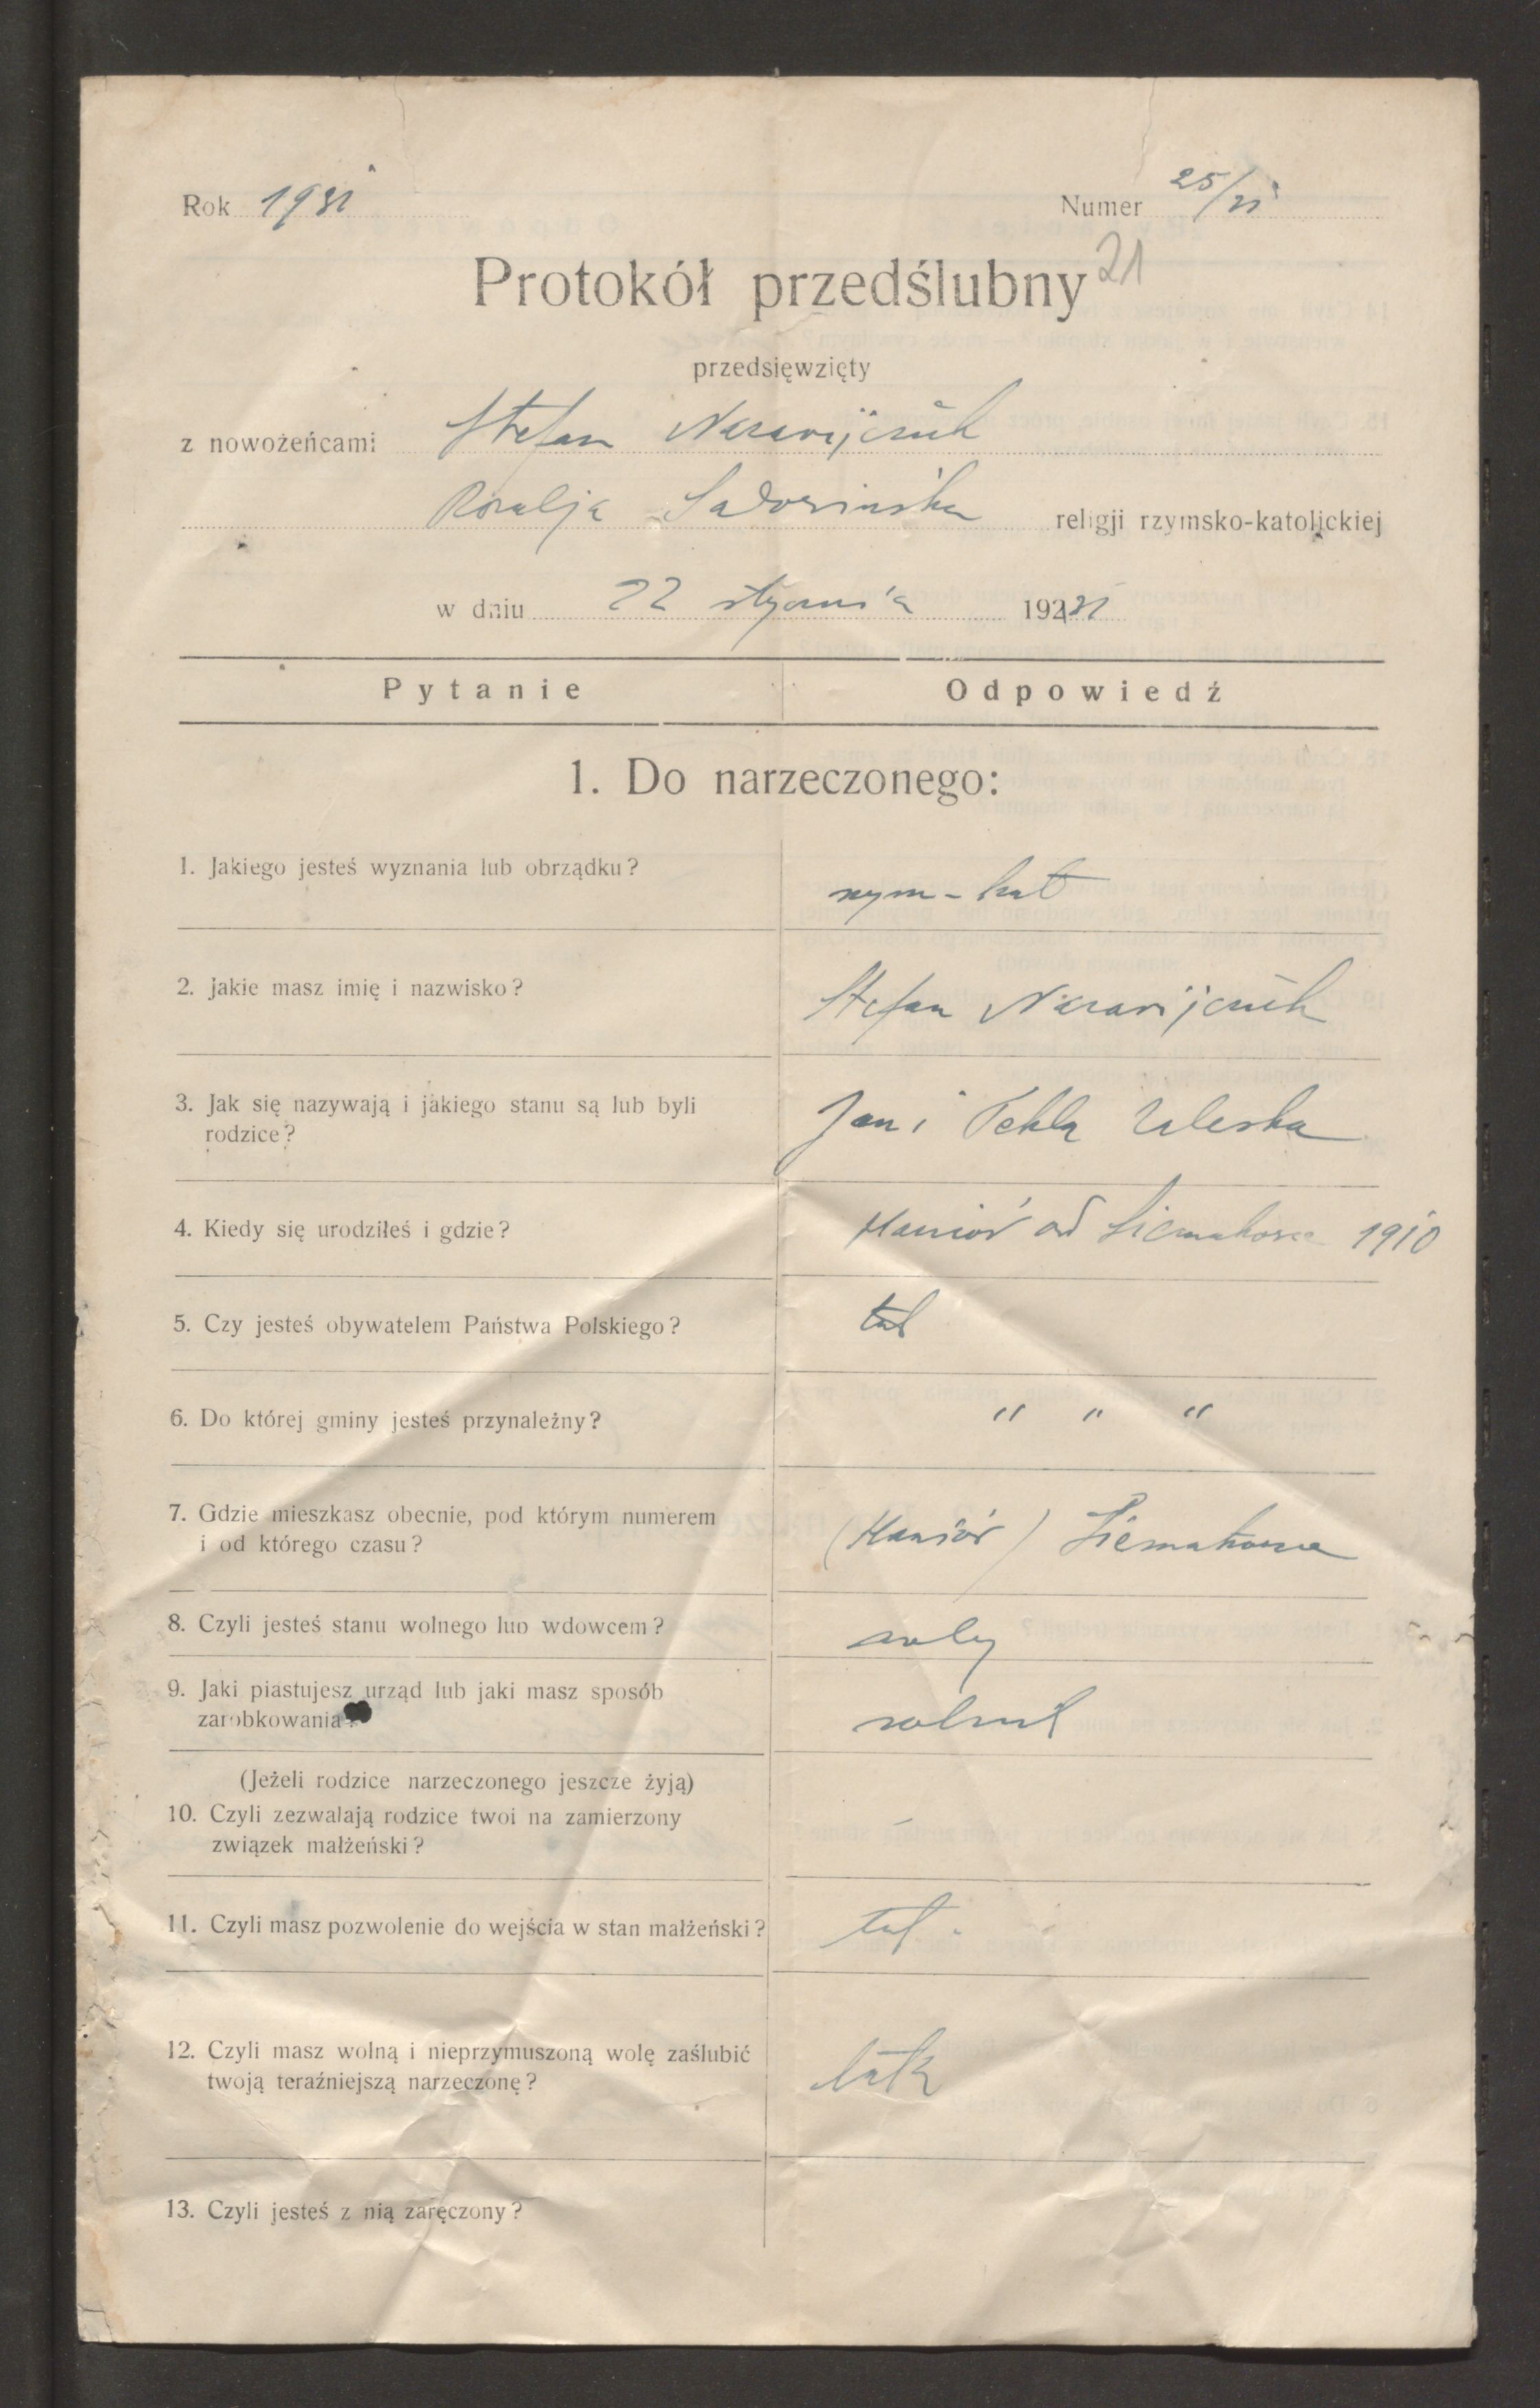 Rok 1931 Numer 25/31
Protokół przedślubny 21
przedsięwzięty
z nowożeńcami Stefan
Rozalja religji rzymsko-katolickiej
w dniu 22 stycznia 192 31
Pytanie Odpowiedź
1. Do narzeczonego:
1. Jakiego jesteś wyznania lub obrządku? rzym-kat
2. Jakie masz imię i nazwisko? Stefan
3. Jak się nazywają i jakiego stanu są lub byli Jan i Tekla
rodzice?
4. Kiedy się urodziłeś i gdzie? 1910
5. Czy jesteś obywatelem Państwa Polskiego? tak
6. Do której gminy jesteś przynależny? " " "
7. Gdzie mieszkasz obecnie, pod którym numerem
i od którego czasu?
8. Czyli jesteś stanu wolnego lub wdowcem? wolny
9. Jaki piastujesz urząd lub jaki masz sposób
zarobkowania? rolnik
(Jeżeli rodzice narzeczonego jeszcze żyją)
10. Czyli zezwalają rodzice twoi na zamierzony
związek małżeński? -
11. Czyli masz pozwolenie do wejścia w stan małżeński? tak.
12. Czyli masz wolną i nieprzymuszoną wolę zaślubić
twoją teraźniejszą narzeczonę? tak
13. Czyli jesteś z nią zaręczony?